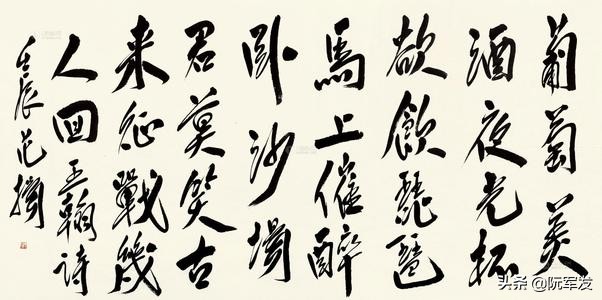 葡萄美
酒夜光杯
欲飲琵琶
馬上催醉
卧沙場
君莫笑古
来征戰幾
人回王翰詩
壬辰范
头条 @阮军发